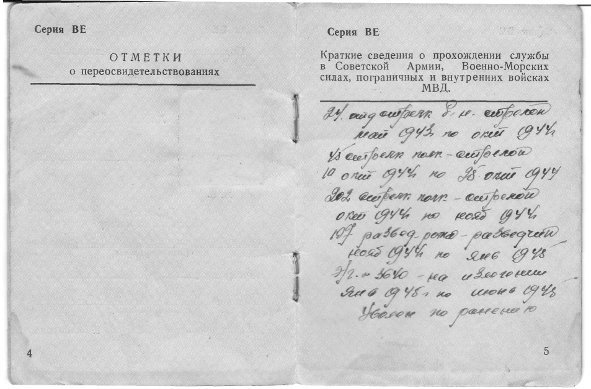 Серия ВЕ
ОТМЕТКИ
о переосвидетельствованиях
4
Серия ВЕ
Краткие сведения о прохождении службы
в Советской Армии, Военно-Морских
силах, пограничных и внутренних войсках
МВД.
24 стрелк стрелок
май 1943 по окт 1944
45 стрелк полк - стрелок
10 окт 1944 по 28 окт 1944
202 стрелк полк - стрелок
окт 1944 по нояб 1944
развед рота - разведчик
нояб 1944 по янв 1945
Э/г - 3640 - на излечении
янв 1945 г по июнь 1945
Уволен по ранению
5